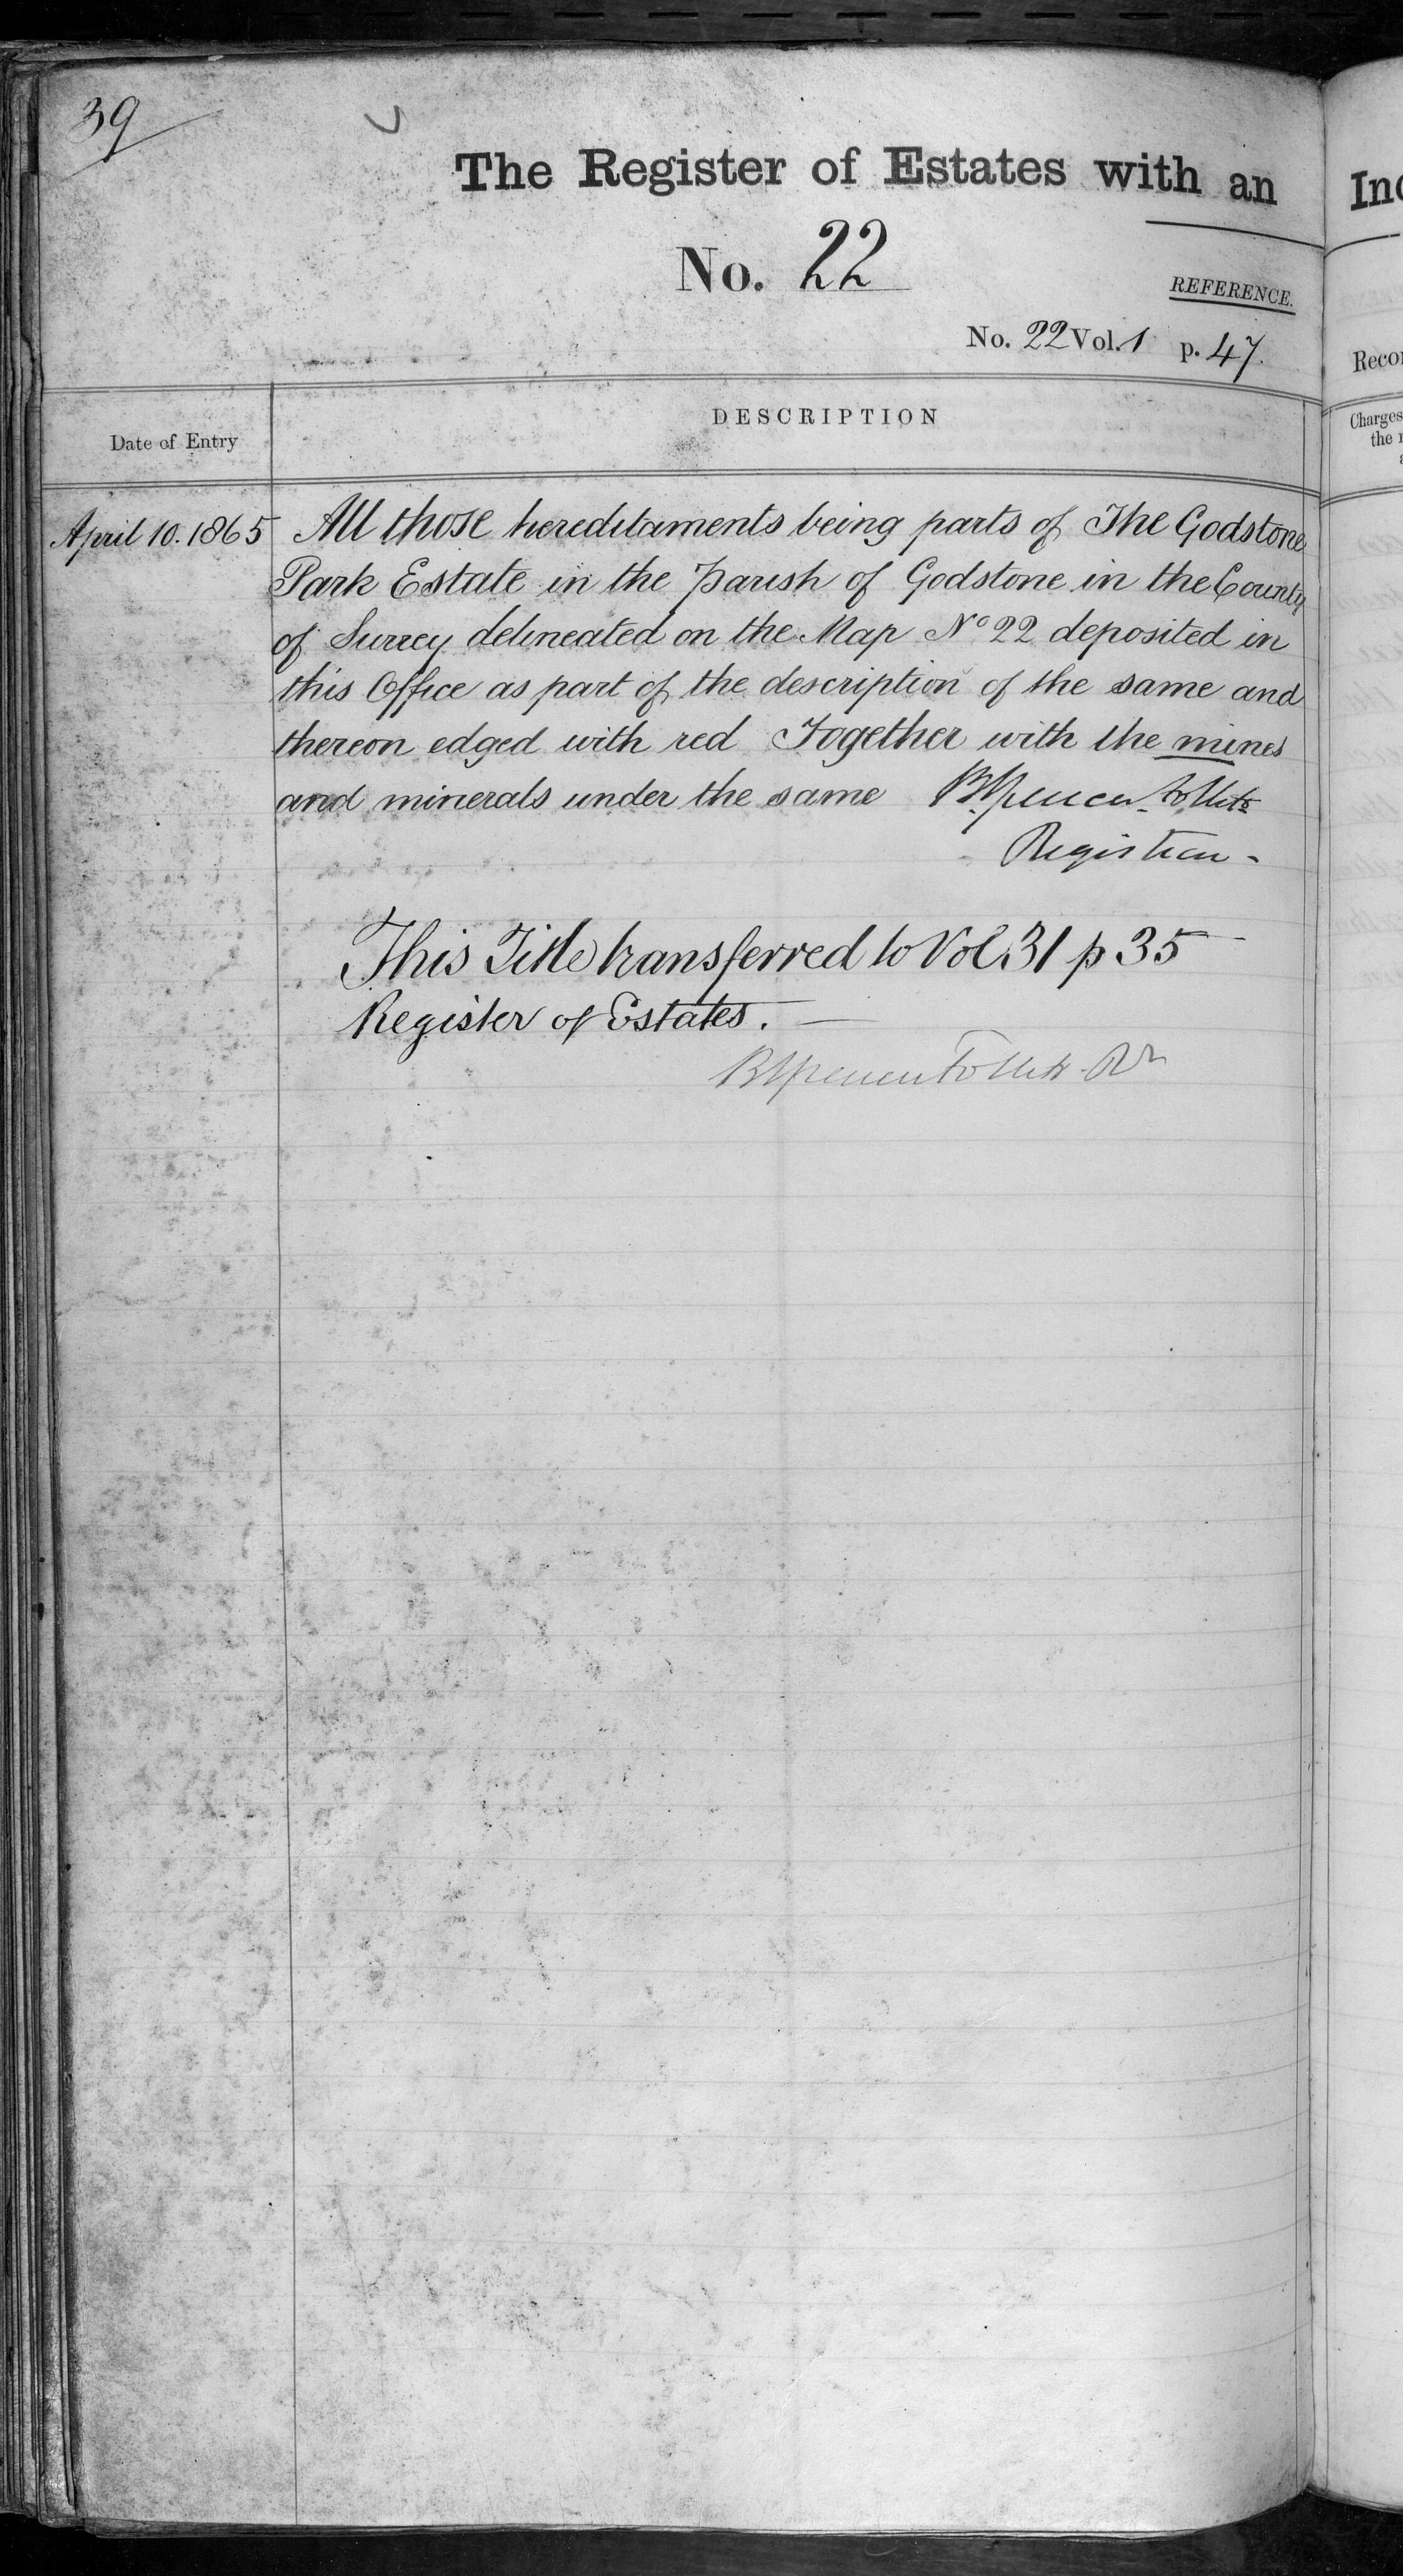 39
The Register of Estates with an
No. 22
REFERENCE.
No. 22 Vol. 1 p. 47.
Date of Entry
DESCRIPTION
April 10. 1865
All those hereditaments being parts of The Godstone
Park Estate in the Parish of Godstone in the County
of Surrey delineated on the Map No 22 deposited in
this Office as part of the description of the same and
thereon edged with red Together with the mines
and minerals under the same B Spencer Follett
Registrar -
This Title transferred to Vol. 31 p 35
Register of Estates. —
B Spencer Follett Rr
Charges
the